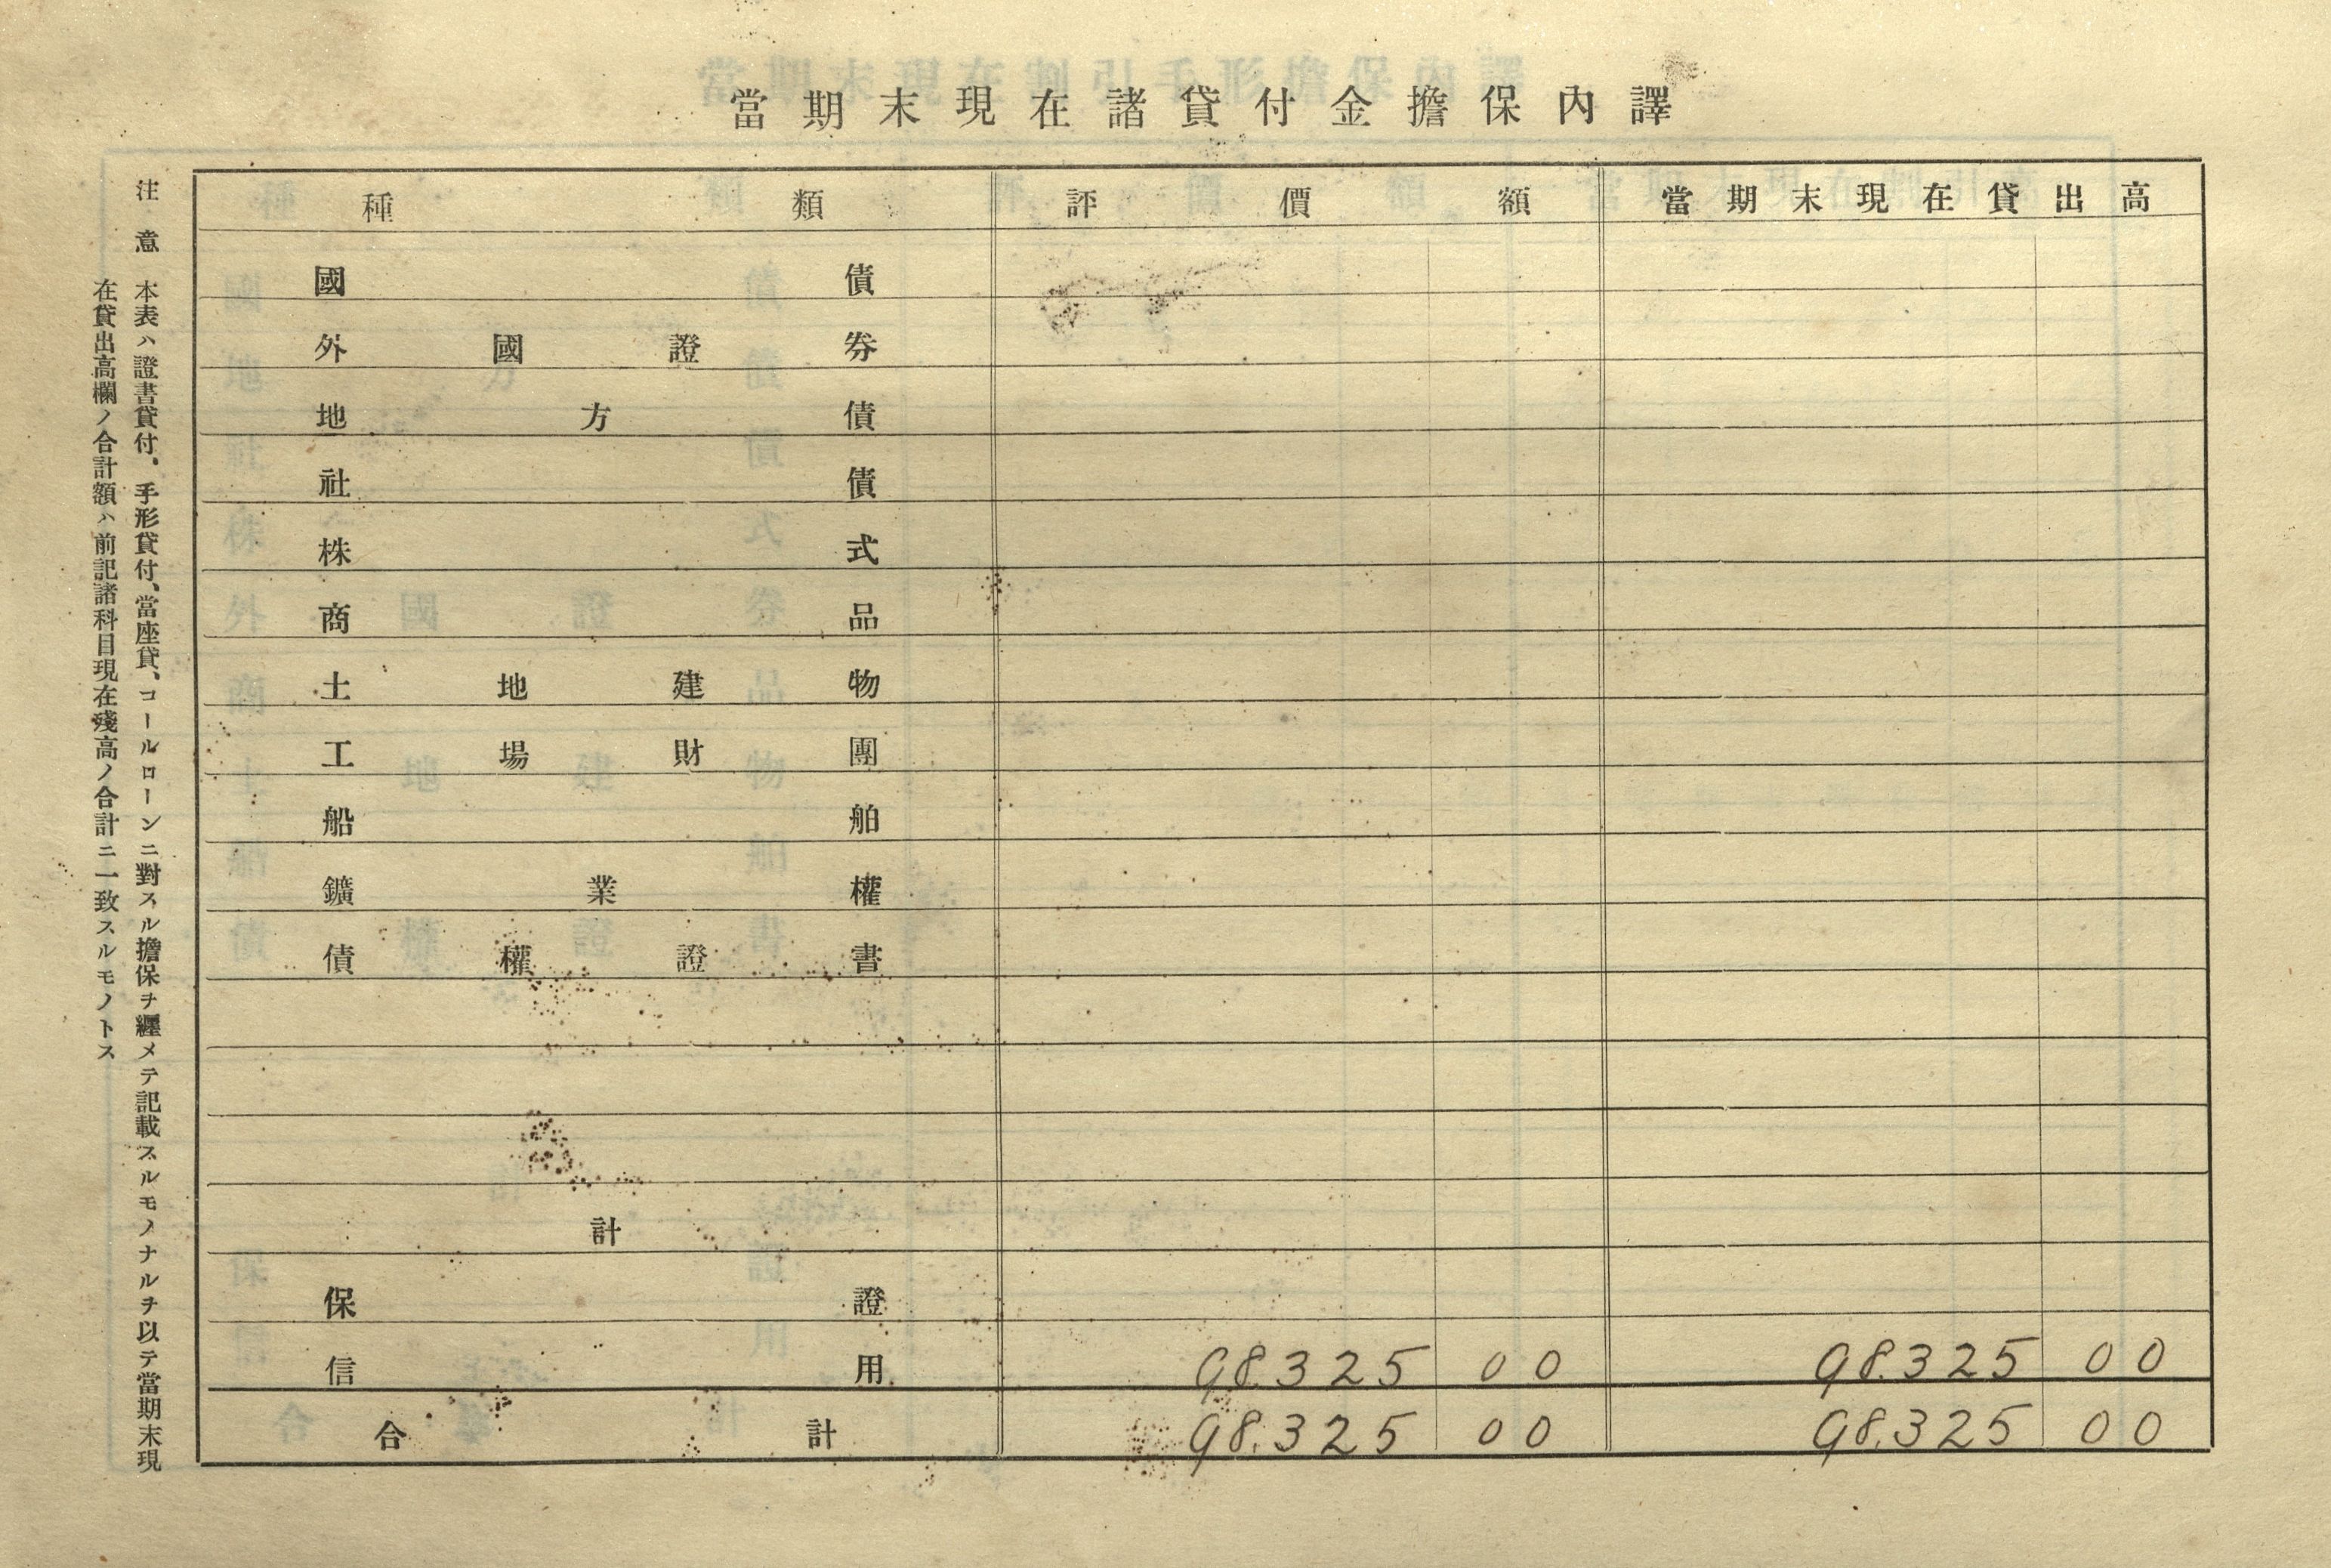 當期末現在諸貸付金擔保內譯
種類 評價額 當期末現在貸出高
國債
外國證券
地方債
社債
株式
商品
土地建物
工場財團
船舶
鑛業權
債權證書
計
保證
信用 98.325 00 98.325 00
合計 98.325 00 98.325 00
注意 本表ハ證書貸付、手形貸付、當座貸、コールローンニ對スル擔保ヲ纒メテ記載スルモノナルヲ以テ當期末現
在貸出高欄ノ合計額ハ前記諸科目現在殘高ノ合計ニ一致スルモノトス